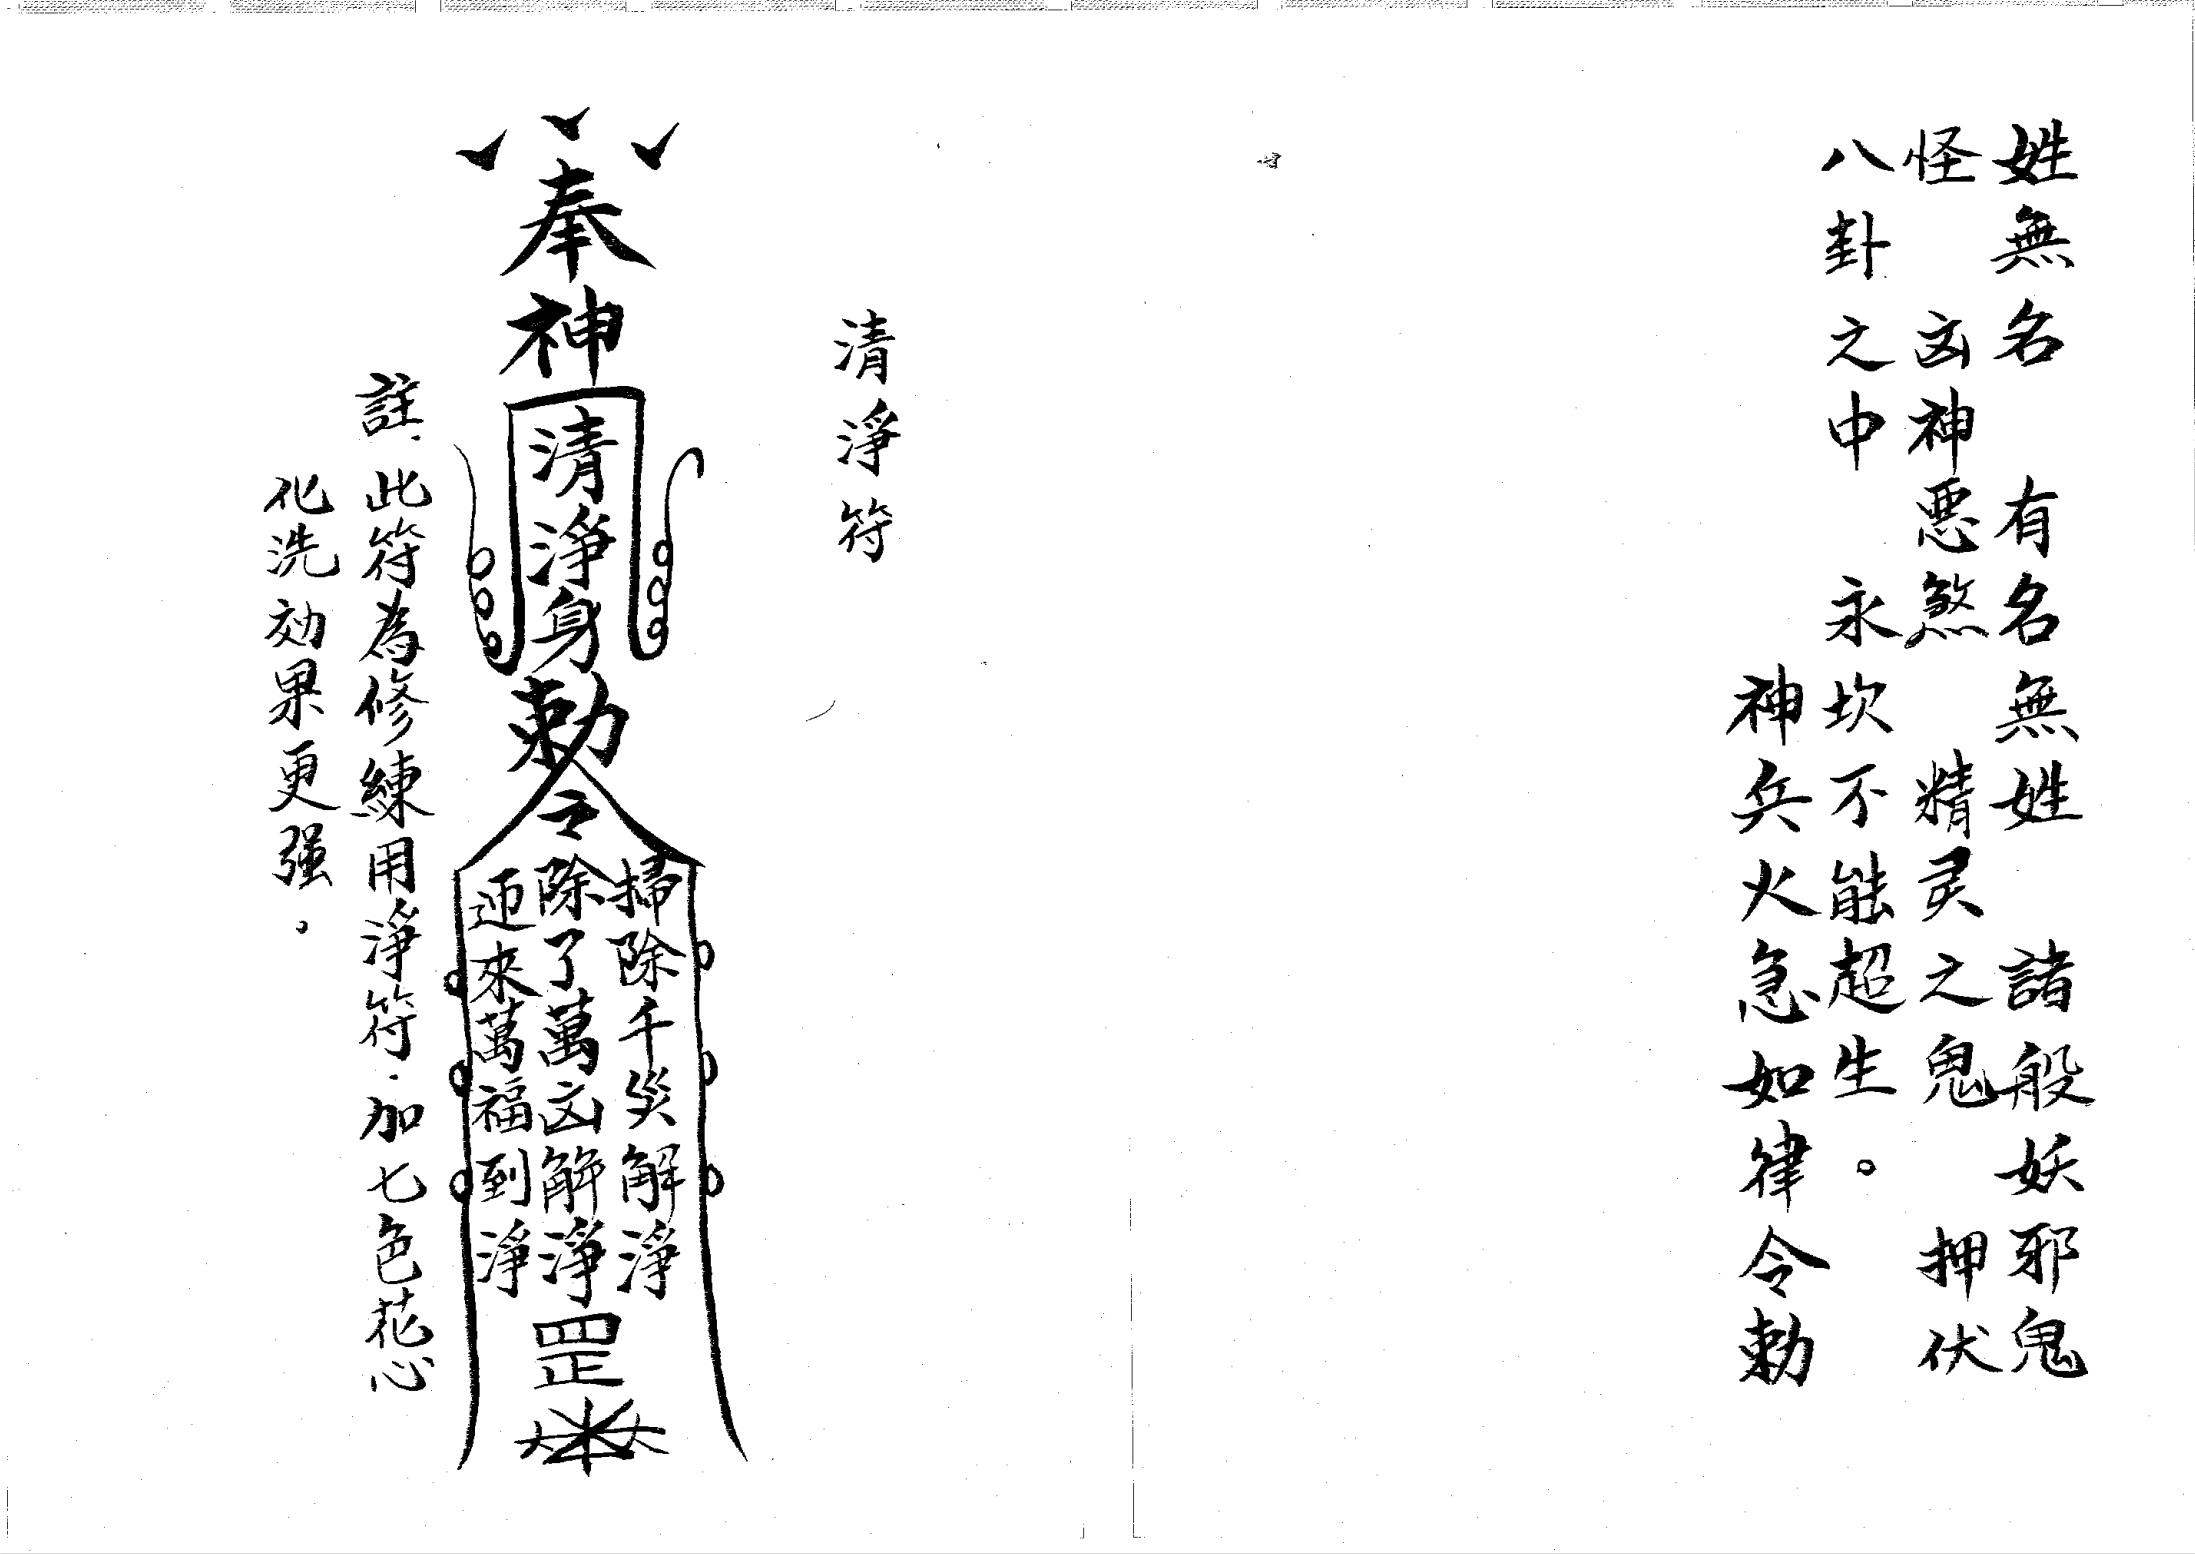 姓無名　有名無姓　諸般妖邪鬼
怪　凶神悪煞　精灵之鬼　押伏
八卦之中　永坎不能超生。
神兵火急如律令勅
清淨符
奉
神
清淨身
勅
令
掃除千災解淨
除了萬凶解淨
迎來萬福到淨
罡
註.此符為修練用淨符.加七色花心
化洗効果更强。